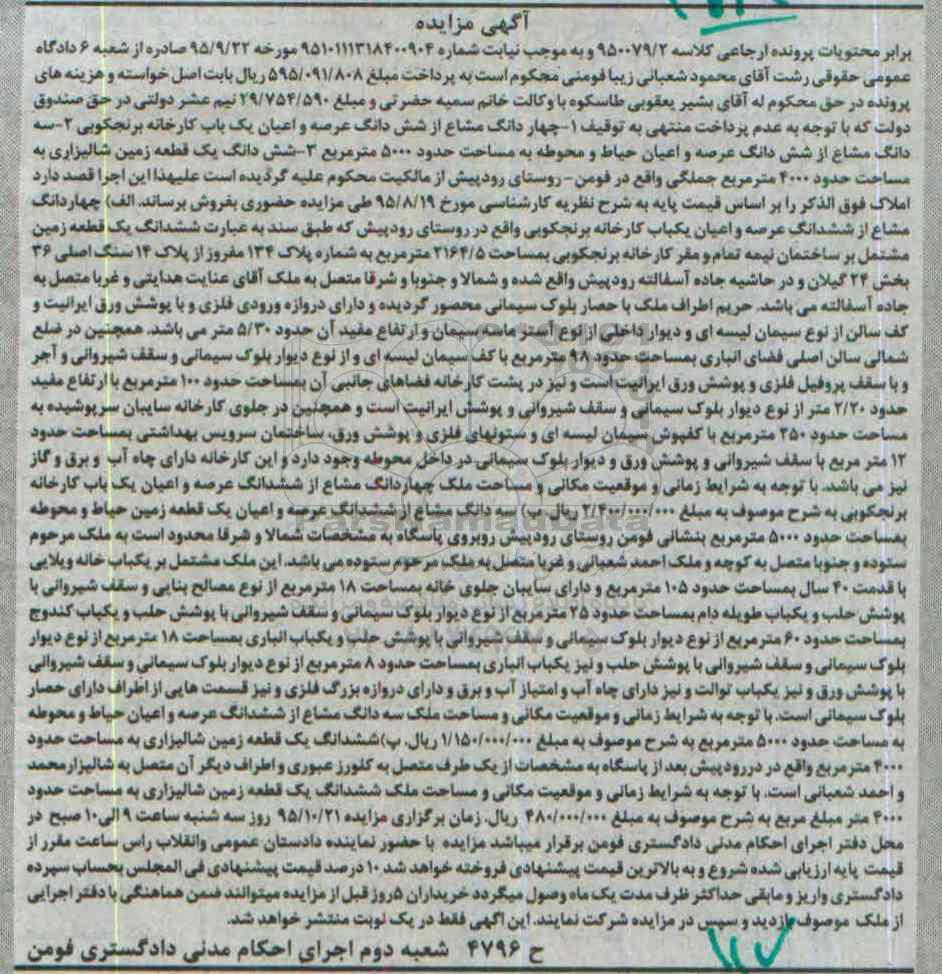 آگهی مزایده
برابر محتویات پرونده ارجاعی کلاسه ۹۵۰۰۷۹/۲ و به موجب نیابت شماره ۹۵۱۰۱۱۱۳۱۸۴۰۰۹۰۴ مورخه ۹۵/۹/۲۲ صادره از شعبه ۶ دادگاه
عمومی حقوقی رشت آقای محمود شعبانی زیبا فومنی محکوم است به پرداخت مبلغ ۵۹۵/۰۹۱/۸۰۸ ریال بابت اصل خواسته و هزینه های
پرونده در حق محکوم له آقای بشیر یعقوبی طاسکوه با وکالت خانم سمیه حضرتی و مبلغ ۲۹/۷۵۴/۵۹۰ نیم عشر دولتی در حق صندوق
دولت که با توجه به عدم پرداخت منتهی به توقیف ۱-چهار دانگ مشاع از شش دانگ عرصه و اعیان یک باب کارخانه برنجکوبی ۲-سه
دانگ مشاع از شش دانگ عرصه و اعیان حیاط و محوطه به مساحت حدود ۵۰۰۰ مترمربع ۳-شش دانگ یک قطعه زمین شالیزاری به
مساحت حدود ۴۰۰۰ مترمربع جملگی واقع در فومن-روستای رودپیش از مالکیت محکوم علیه گردیده است علیهذا این اجرا قصد دارد
املاک فوق الذکر را بر اساس قیمت پایه به شرح نظریه کارشناسی مورخ ۹۵/۸/۱۹ طی مزایده حضوری بفروش برساند. الف) چهاردانگ
مشاع از ششدانگ عرصه و اعیان یکباب کارخانه برنجکوبی واقع در روستای رودپیش که طبق سند به عبارت ششدانگ یک قطعه زمین
مشتمل بر ساختمان نیمه تمام و مقر کارخانه برنجکوبی بمساحت ۲۱۶۴/۵ مترمربع به شماره پلاک ۱۳۴ مفروز از پلاک ۱۴ سنگ اصلی ۳۶
بخش ۲۴ گیلان و در حاشیه جاده آسفالته رودپیش واقع شده و شمالا و جنوبا و شرقا متصل به ملک آقای عنایت هدایتی و غربا متصل به
جاده آسفالته می باشد. حریم اطراف ملک با حصار بلوک سیمانی محصور گردیده و دارای دروازه ورودی فلزی و با پوشش ورق ایرانیت و
کف سالن از نوع سیمان لیسه ای و دیوار داخلی از نوع آستر ماسه سیمان و ارتفاع مفید آن حدود ۵/۳۰ متر می باشد. همچنین در ضلع
شمالی سالن اصلی فضای انباری بمساحت حدود ۹۸ مترمربع با کف سیمان لیسه ای و از نوع دیوار بلوک سیمانی و سقف شیروانی و آجر
و با سقف پروفیل فلزی و پوشش ورق ایرانیت است و نیز در پشت کارخانه فضاهای جانبی آن بمساحت حدود ۱۰۰ مترمربع با ارتفاع مفید
حدود ۲/۲۰ متر از نوع دیوار بلوک سیمانی و سقف شیروانی و پوشش ایرانیت است و همچنین در جلوی کارخانه سایبان سرپوشیده به
مساحت حدود ۲۵۰ مترمربع با کفپوش سیمان لیسه ای و ستونهای فلزی و پوشش ورق، ساختمان سرویس بهداشتی بمساحت حدود
۱۲ متر مربع با سقف شیروانی و پوشش ورق و دیوار بلوک سیمانی در داخل محوطه وجود دارد و این کارخانه دارای چاه آب و برق و گاز
نیز می باشد. با توجه به شرایط زمانی و موقعیت مکانی و مساحت ملک چهاردانگ مشاع از ششدانگ عرصه و اعیان یک باب کارخانه
برنجکوبی به شرح موصوف به مبلغ ۲/۴۰۰/۰۰۰/۰۰۰ ریال. ب) سه دانگ مشاع از ششدانگ عرصه و اعیان یک قطعه زمین حیاط و محوطه
بمساحت حدود ۵۰۰۰ مترمربع بنشانی فومن روستای رودپیش روبروی پاسگاه به مشخصات شمالا و شرقا محدود است به ملک مرحوم
ستوده و جنوبا متصل به کوچه و ملک احمد شعبانی و غربا متصل به ملک مرحوم ستوده می باشد. این ملک مشتمل بر یکباب خانه ویلایی
با قدمت ۴۰ سال بمساحت حدود ۱۰۵ مترمربع و دارای سایبان جلوی خانه بمساحت ۱۸ مترمربع از نوع مصالح بنایی و سقف شیروانی با
پوشش حلب و یکباب طویله دام بمساحت حدود ۲۵ مترمربع از نوع دیوار بلوک سیمانی و سقف شیروانی با پوشش حلب و یکباب کندوج
بمساحت حدود ۶۰ مترمربع از نوع دیوار بلوک سیمانی و سقف شیروانی با پوشش حلب و یکباب انباری بمساحت ۱۸ مترمربع از نوع دیوار
بلوک سیمانی و سقف شیروانی با پوشش حلب و نیز یکباب انباری بمساحت حدود ۸ مترمربع از نوع دیوار بلوک سیمانی و سقف شیروانی
با پوشش ورق و نیز یکباب توالت و نیز دارای چاه آب و امتیاز آب و برق و دارای دروازه بزرگ فلزی و نیز قسمت هایی از اطراف دارای حصار
بلوک سیمانی است. با توجه به شرایط زمانی و موقعیت مکانی و مساحت ملک سه دانگ مشاع از ششدانگ عرصه و اعیان حیاط و محوطه
به مساحت حدود ۵۰۰۰ مترمربع به شرح موصوف به مبلغ ۱/۱۵۰/۰۰۰/۰۰۰ ریال. پ)ششدانگ یک قطعه زمین شالیزاری به مساحت حدود
۴۰۰۰ مترمربع واقع در دررودپیش بعد از پاسگاه به مشخصات از یک طرف متصل به کلورز عبوری و اطراف دیگر آن متصل به شالیزار محمد
و احمد شعبانی است. با توجه به شرایط زمانی و موقعیت مکانی و مساحت ملک ششدانگ یک قطعه زمین شالیزاری به مساحت حدود
۴۰۰۰ متر مبلغ مربع به شرح موصوف به مبلغ ۴۸۰/۰۰۰/۰۰۰ ریال. زمان برگزاری مزایده ۹۵/۱۰/۲۱ روز سه شنبه ساعت ۹ الی۱۰ صبح در
محل دفتر اجرای احکام مدنی دادگستری فومن برقرار میباشد مزایده با حضور نماینده دادستان عمومی وانقلاب راس ساعت مقرر از
قیمت پایه ارزیابی شده شروع و به بالاترین قیمت پیشنهادی فروخته خواهد شد ۱۰ درصد قیمت پیشنهادی فی المجلس بحساب سپرده
دادگستری واریز و مابقی حداکثر ظرف مدت یک ماه وصول میگردد خریداران ۵روز قبل از مزایده میتوانند ضمن هماهنگی با دفتر اجرایی
از ملک موصوف بازدید و سپس در مزایده شرکت نمایند. این اگهی فقط در یک نوبت منتشر خواهد شد.
ح ۴۷۹۶ شعبه دوم اجرای احکام مدنی دادگستری فومن